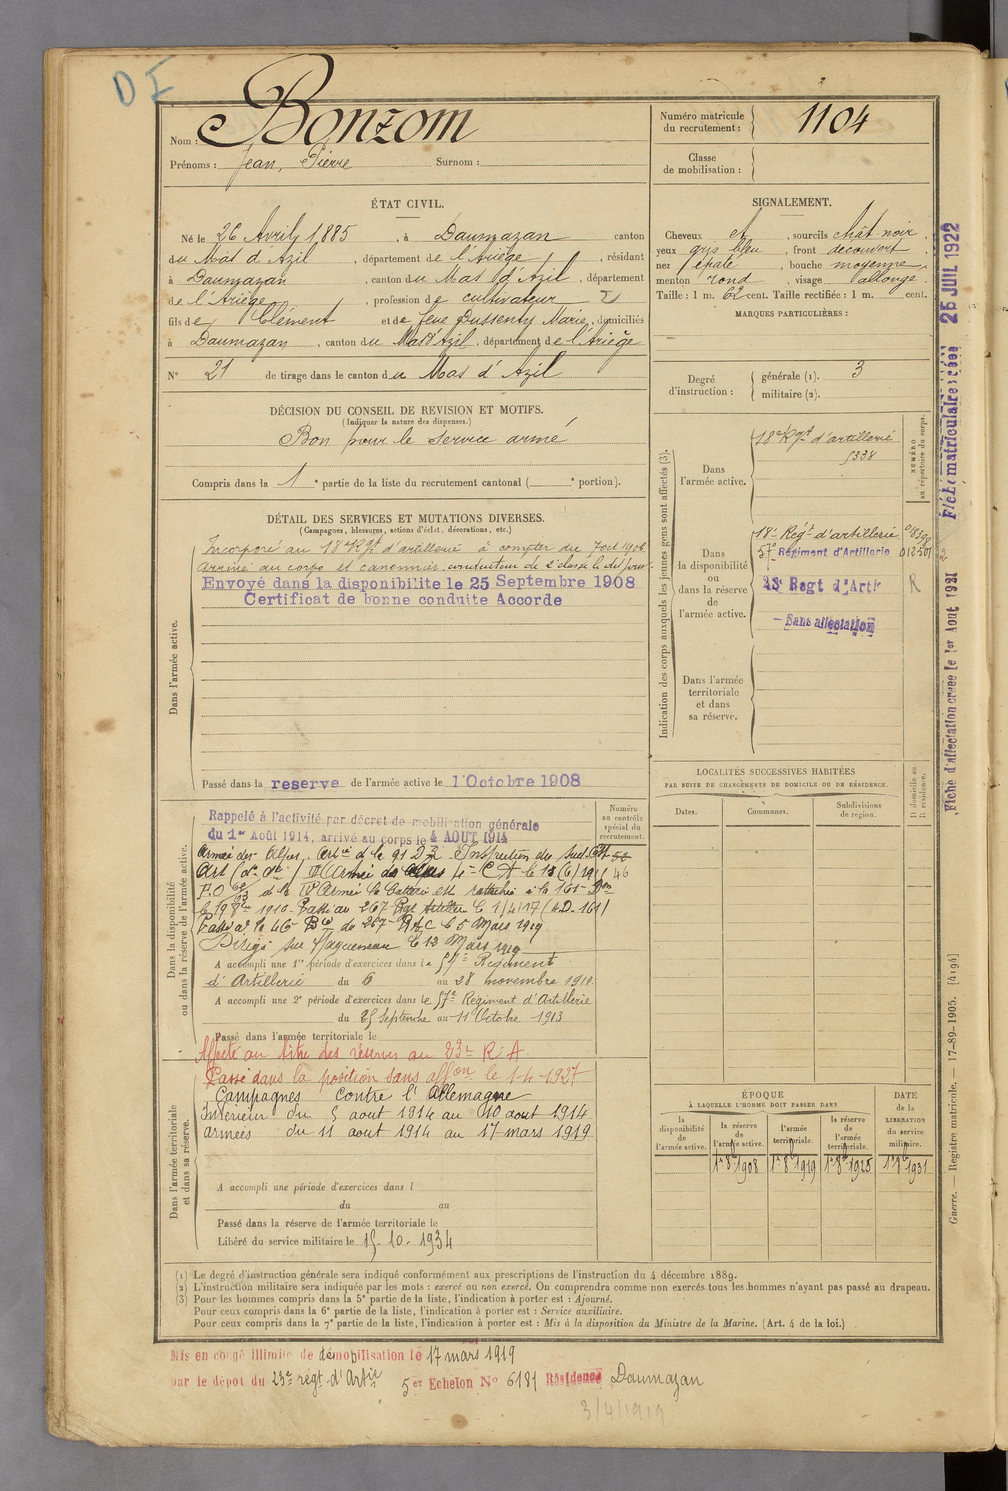 DF
Nom : Bonzom
Prénoms : Jean, Pierre Surnom :
Numéro matricule du recrutement : 1104
Classe de mobilisation :
ÉTAT CIVIL.
Né le 26 Avril 1885, à Daumazan canton
du Mas d'Azil, département de l'Ariège, résidant
à Daumazan, canton du Mas d'Azil, département
de l'Ariège, profession de cultivateur
fils de Clément et de feue Dussenty Marie, domiciliés
à Daumazan, canton du Mas d'Azil, département de l'Ariège
N° 21 de tirage dans le canton du Mas d'Azil
SIGNALEMENT.
Cheveux et, sourcils chât-noir,
yeux gris bleu, front découvert
nez épaté, bouche moyenne,
menton rond, visage allongé.
Taille : 1 m. 62 cent. Taille rectifiée : 1 m. cent.
MARQUES PARTICULIÈRES :
Degré d'instruction : générale (1). 3
militaire (2).
DÉCISION DU CONSEIL DE REVISION ET MOTIFS.
(Indiquer la nature des dispenses.)
Bon pour le service armé
Compris dans la 1e partie de la liste du recrutement cantonal ( e portion).
DÉTAIL DES SERVICES ET MUTATIONS DIVERSES.
(Campagnes, blessures, actions d'éclat, décorations, etc.)
Dans l'armée active.
Incorporé au 18e Rgt d'artillerie à compter du 7 oct 1906
Arrivé au corps et canonnier conducteur de 2e classe le dit jour.
Envoyé dans la disponibilité le 25 Septembre 1908
Certificat de bonne conduite Accordé
Passé dans la reserve de l'armée active le 1 Octobre 1908
Indication des corps auxquels les jeunes gens sont affectés (3).
NUMÉRO au répertoire du corps.
Dans l'armée active.
18e Rgt d'artillerie
5338
Dans la disponibilité ou dans la réserve de l'armée active.
18e Régt d'artillerie
57e Régiment d'Artillerie 01250
23e Regt d'Artie R
Sans affectation
Dans l'armée territoriale et dans sa réserve.
Fiche d'affectation créée le 1er Aout 1921
Fiche matriculaire créée 25 JUIL 1922
LOCALITÉS SUCCESSIVES HABITÉES
PAR SUITE DE CHANGEMENTS DE DOMICILE OU DE RÉSIDENCE.
Dates. Communes. Subdivisions de région. D domicile ou R résidence.
Dans la disponibilité ou dans la réserve de l'armée active.
Numéro au contrôle spécial du recrutement.
Rappelé à l'activité par décret de mobilisation générale
du 1er Août 1914, arrivé au corps le 4 AOUT 1914
Armée des Alpes
le 1/4/17 (A.D. 161)
de 267e RAC le 5 Mars 1919
Dirigé sur Haguenau le 13 Mars 1919
A accompli une 1re période d'exercices dans le 57e Régiment
d'Artillerie du 6 au 28 novembre 1910.
A accompli une 2e période d'exercices dans le 57e Régiment d'Artillerie
du 25 Septembre au 11 Octobre 1913
Passé dans l'armée territoriale le
Affecté au titre des réserves au 23e R.A.
Passé dans la position sans affon le 1-4-1927
Dans l'armée territoriale et dans sa réserve.
Campagnes contre l'Allemagne
Intérieur du 5 aout 1914 au 10 aout 1914
armées du 11 aout 1914 au 17 mars 1919
A accompli une période d'exercices dans l
du au
Passé dans la réserve de l'armée territoriale le
Libéré du service militaire le 15.10.1934
ÉPOQUE
À LAQUELLE L'HOMME DOIT PASSER DANS
la disponibilité de l'armée active. la réserve de l'armée active. l'armée territoriale. la réserve de l'armée territoriale.
DATE de la LIBÉRATION du service militaire.
1er 8bre 1908 1er 8bre 1919 1er 8bre 1925 1er 8bre 1931
(1) Le degré d'instruction générale sera indiqué conformément aux prescriptions de l'instruction du 4 décembre 1889.
(2) L'instruction militaire sera indiquée par les mots : exercé ou non exercé. On comprendra comme non exercés tous les hommes n'ayant pas passé au drapeau.
(3) Pour les hommes compris dans la 5e partie de la liste, l'indication à porter est : Ajourné.
Pour ceux compris dans la 6e partie de la liste, l'indication à porter est : Service auxiliaire.
Pour ceux compris dans la 7e partie de la liste, l'indication à porter est : Mis à la disposition du Ministre de la Marine. (Art. 4 de la loi.)
Guerre. — Registre matricule. — 17-89-1905. [4194]
Mis en congé illimité de démobilisation le 17 mars 1919
par le dépôt du 23e régt d'Artie 5er Echelon N° 6181 Résidence Daumazan
3/4/1919